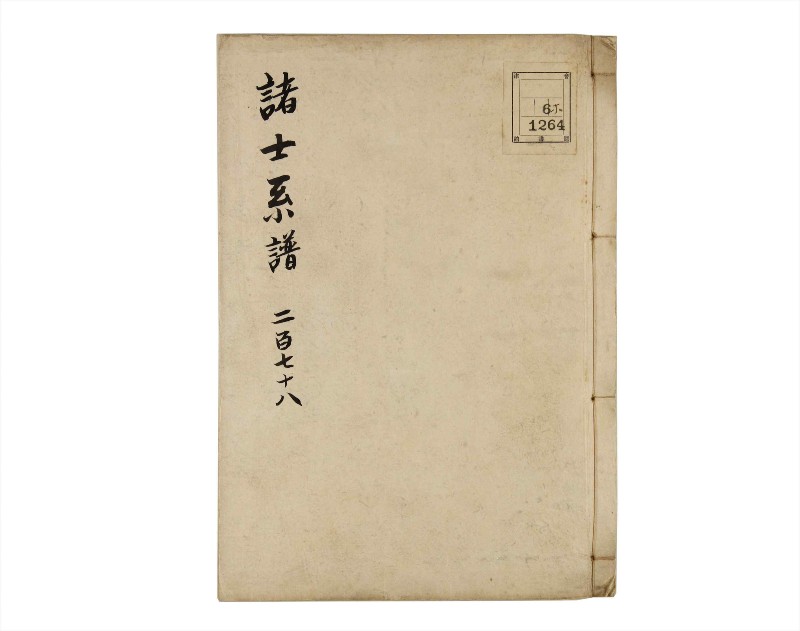 諸士系譜 二百七十八
6
1264